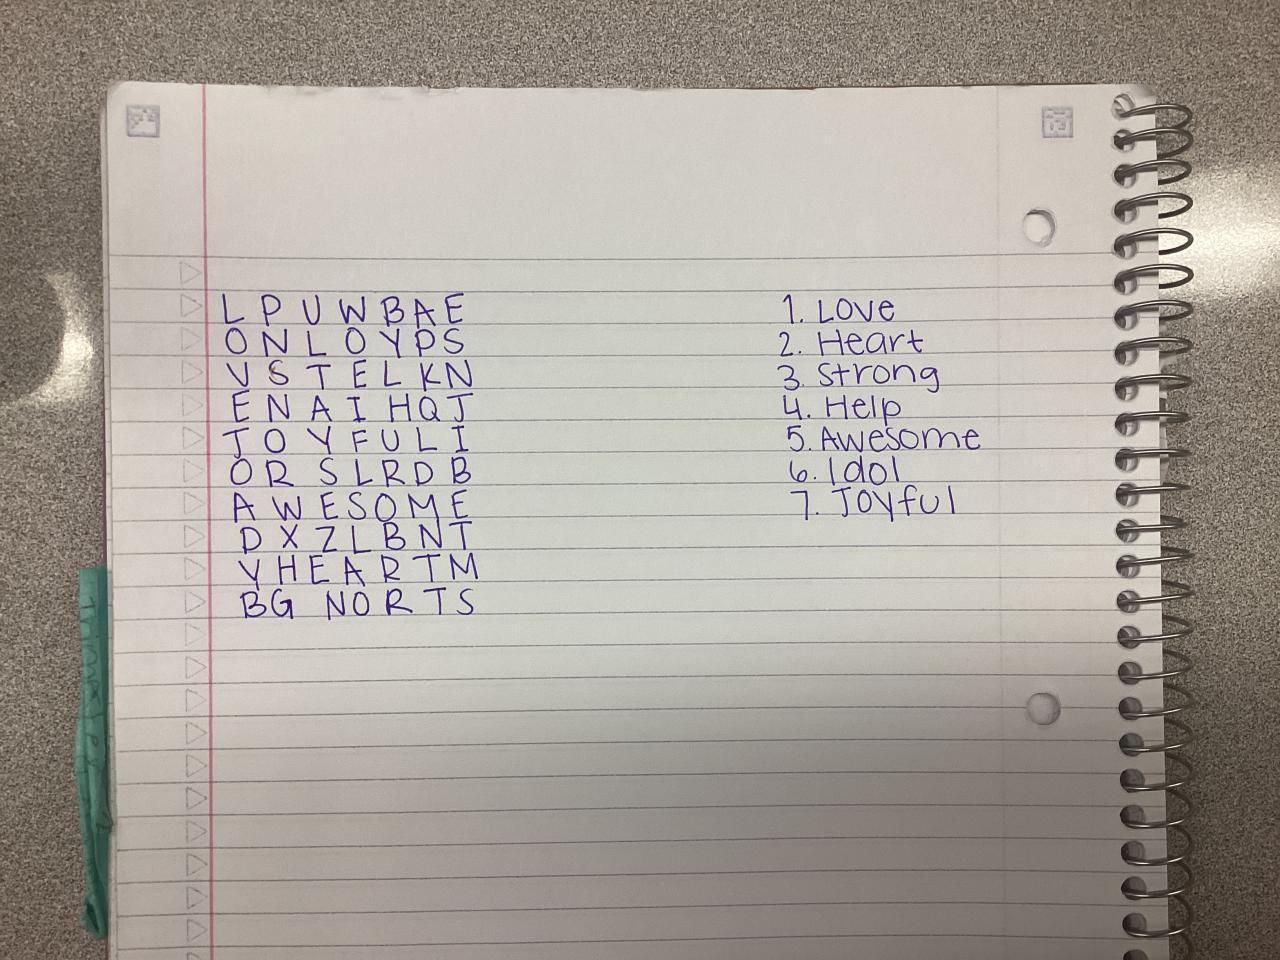 L P U W B A E
O N L O Y P S
V S T E L K N
E N A I H Q J
J O Y F U L I
O R S L R D B
A W E S O M E
D X Z L B N T
Y H E A R T M
B G N O R T S
1. Love
2. Heart
3. Strong
4. Help
5. Awesome
6. Idol
7. Joyful